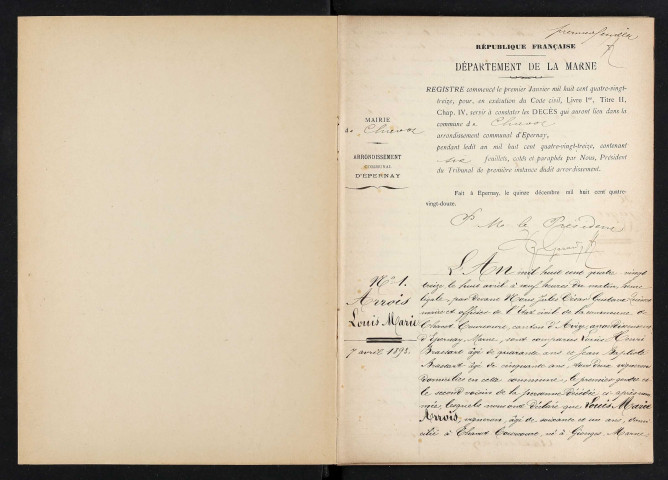 premier feuillet
RÉPUBLIQUE FRANÇAISE
DÉPARTEMENT DE LA MARNE
REGISTRE commencé le premier Janvier mil huit cent quatre-vingt-
treize, pour, en exécution du Code civil, Livre Ier, Titre II,
Chap. IV, servir à constater les DÉCÈS qui auront lieu dans la
commune de
arrondissement communal d'Epernay,
pendant ledit an mil huit cent quatre-vingt-treize, contenant
six feuillets, cotés et paraphés par Nous, Président
du Tribunal de première instance dudit arrondissement.
Fait à Epernay, le quinze décembre mil huit cent quatre-
vingt-douze.
Pr Mr le Président
MAIRIE
de
ARRONDISSEMENT
COMMUNAL
D'EPERNAY
No 1.
Arrois
Louis Marie
7 avril 1893.
L'An mil huit cent quatre vingt
treize le huit avril à neuf heures du matin, heure
légale, par devant Nous Jules César Gustave
maire et officier de l'Etat civil de la commune de
canton d'Avize, arrondissement
d'Epernay, Marne, sont comparus Louis Henri
Brassart âgé de quarante ans et Jean Baptiste
Brassart âgé de cinquante ans, tous deux vignerons
domiciliés en cette commune, le premier gendre et
le second voisin de la personne décédée, ci-après nom-
mée, lesquels nous ont déclaré que Louis Marie
Arrois, vigneron, âgé de soixante et un ans, domi-
cilié à né à Gionges, Marne,